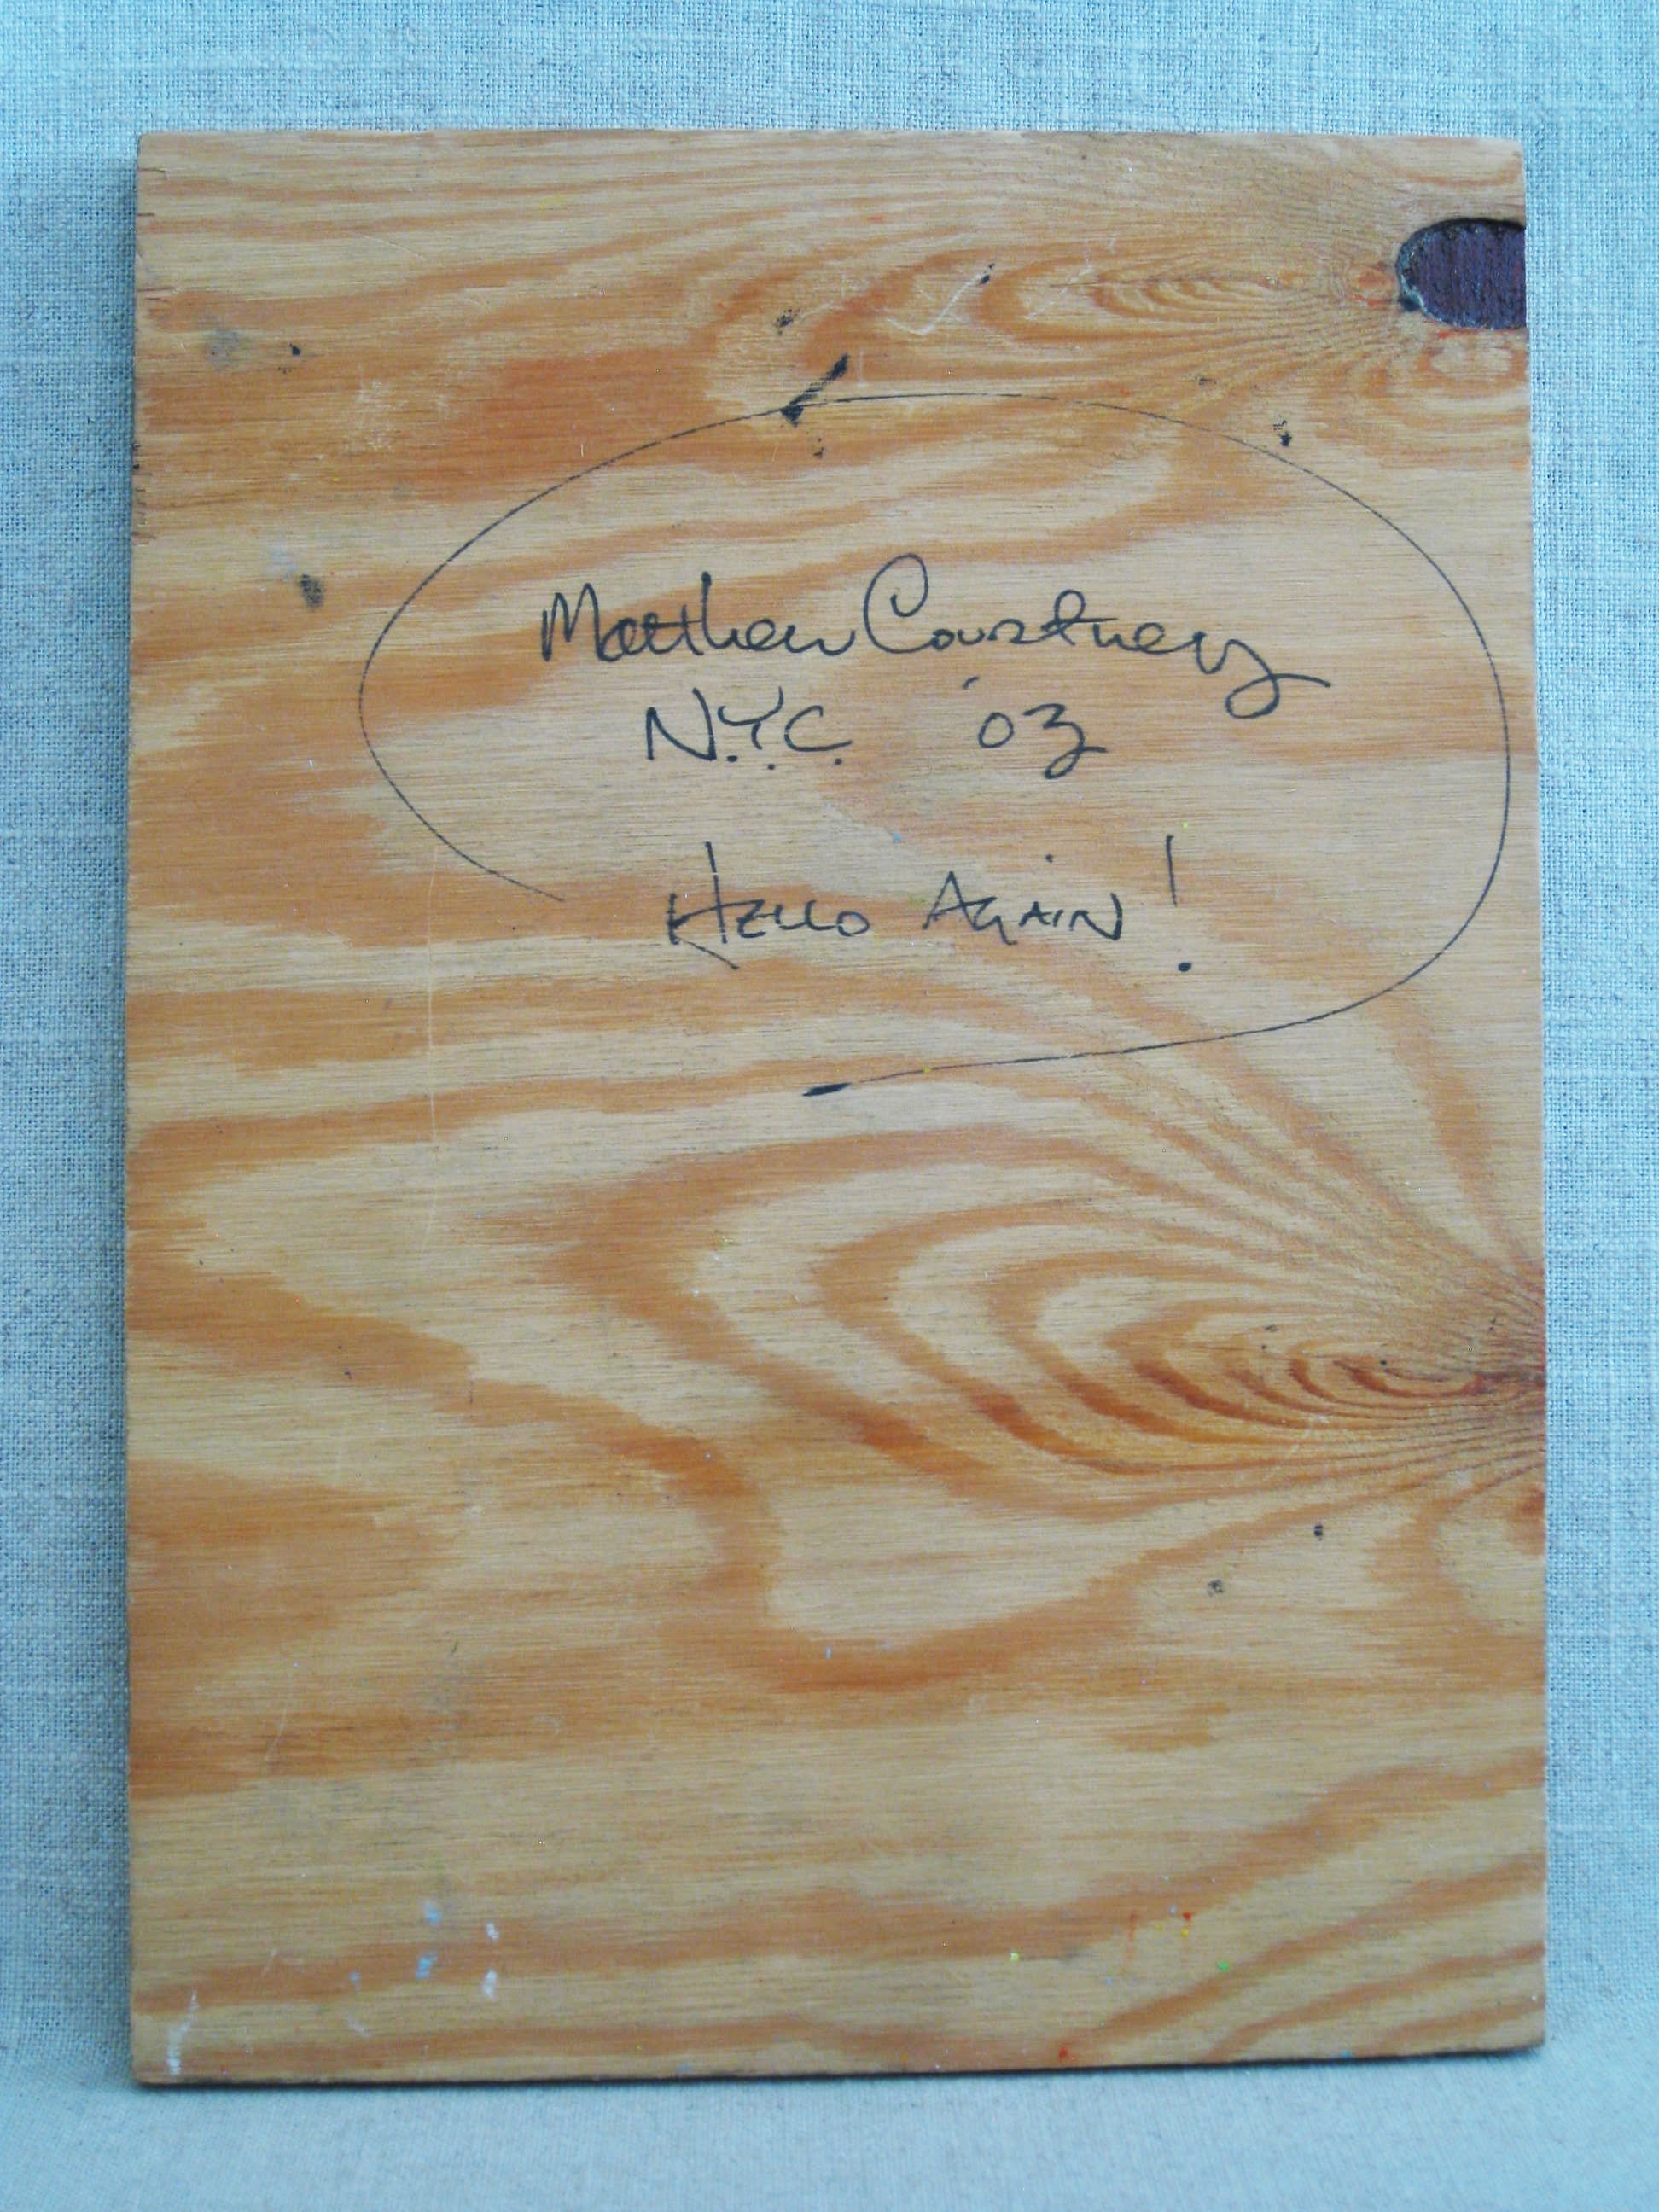 Matthew Courtney
N.Y.C. '03
Hello Again!